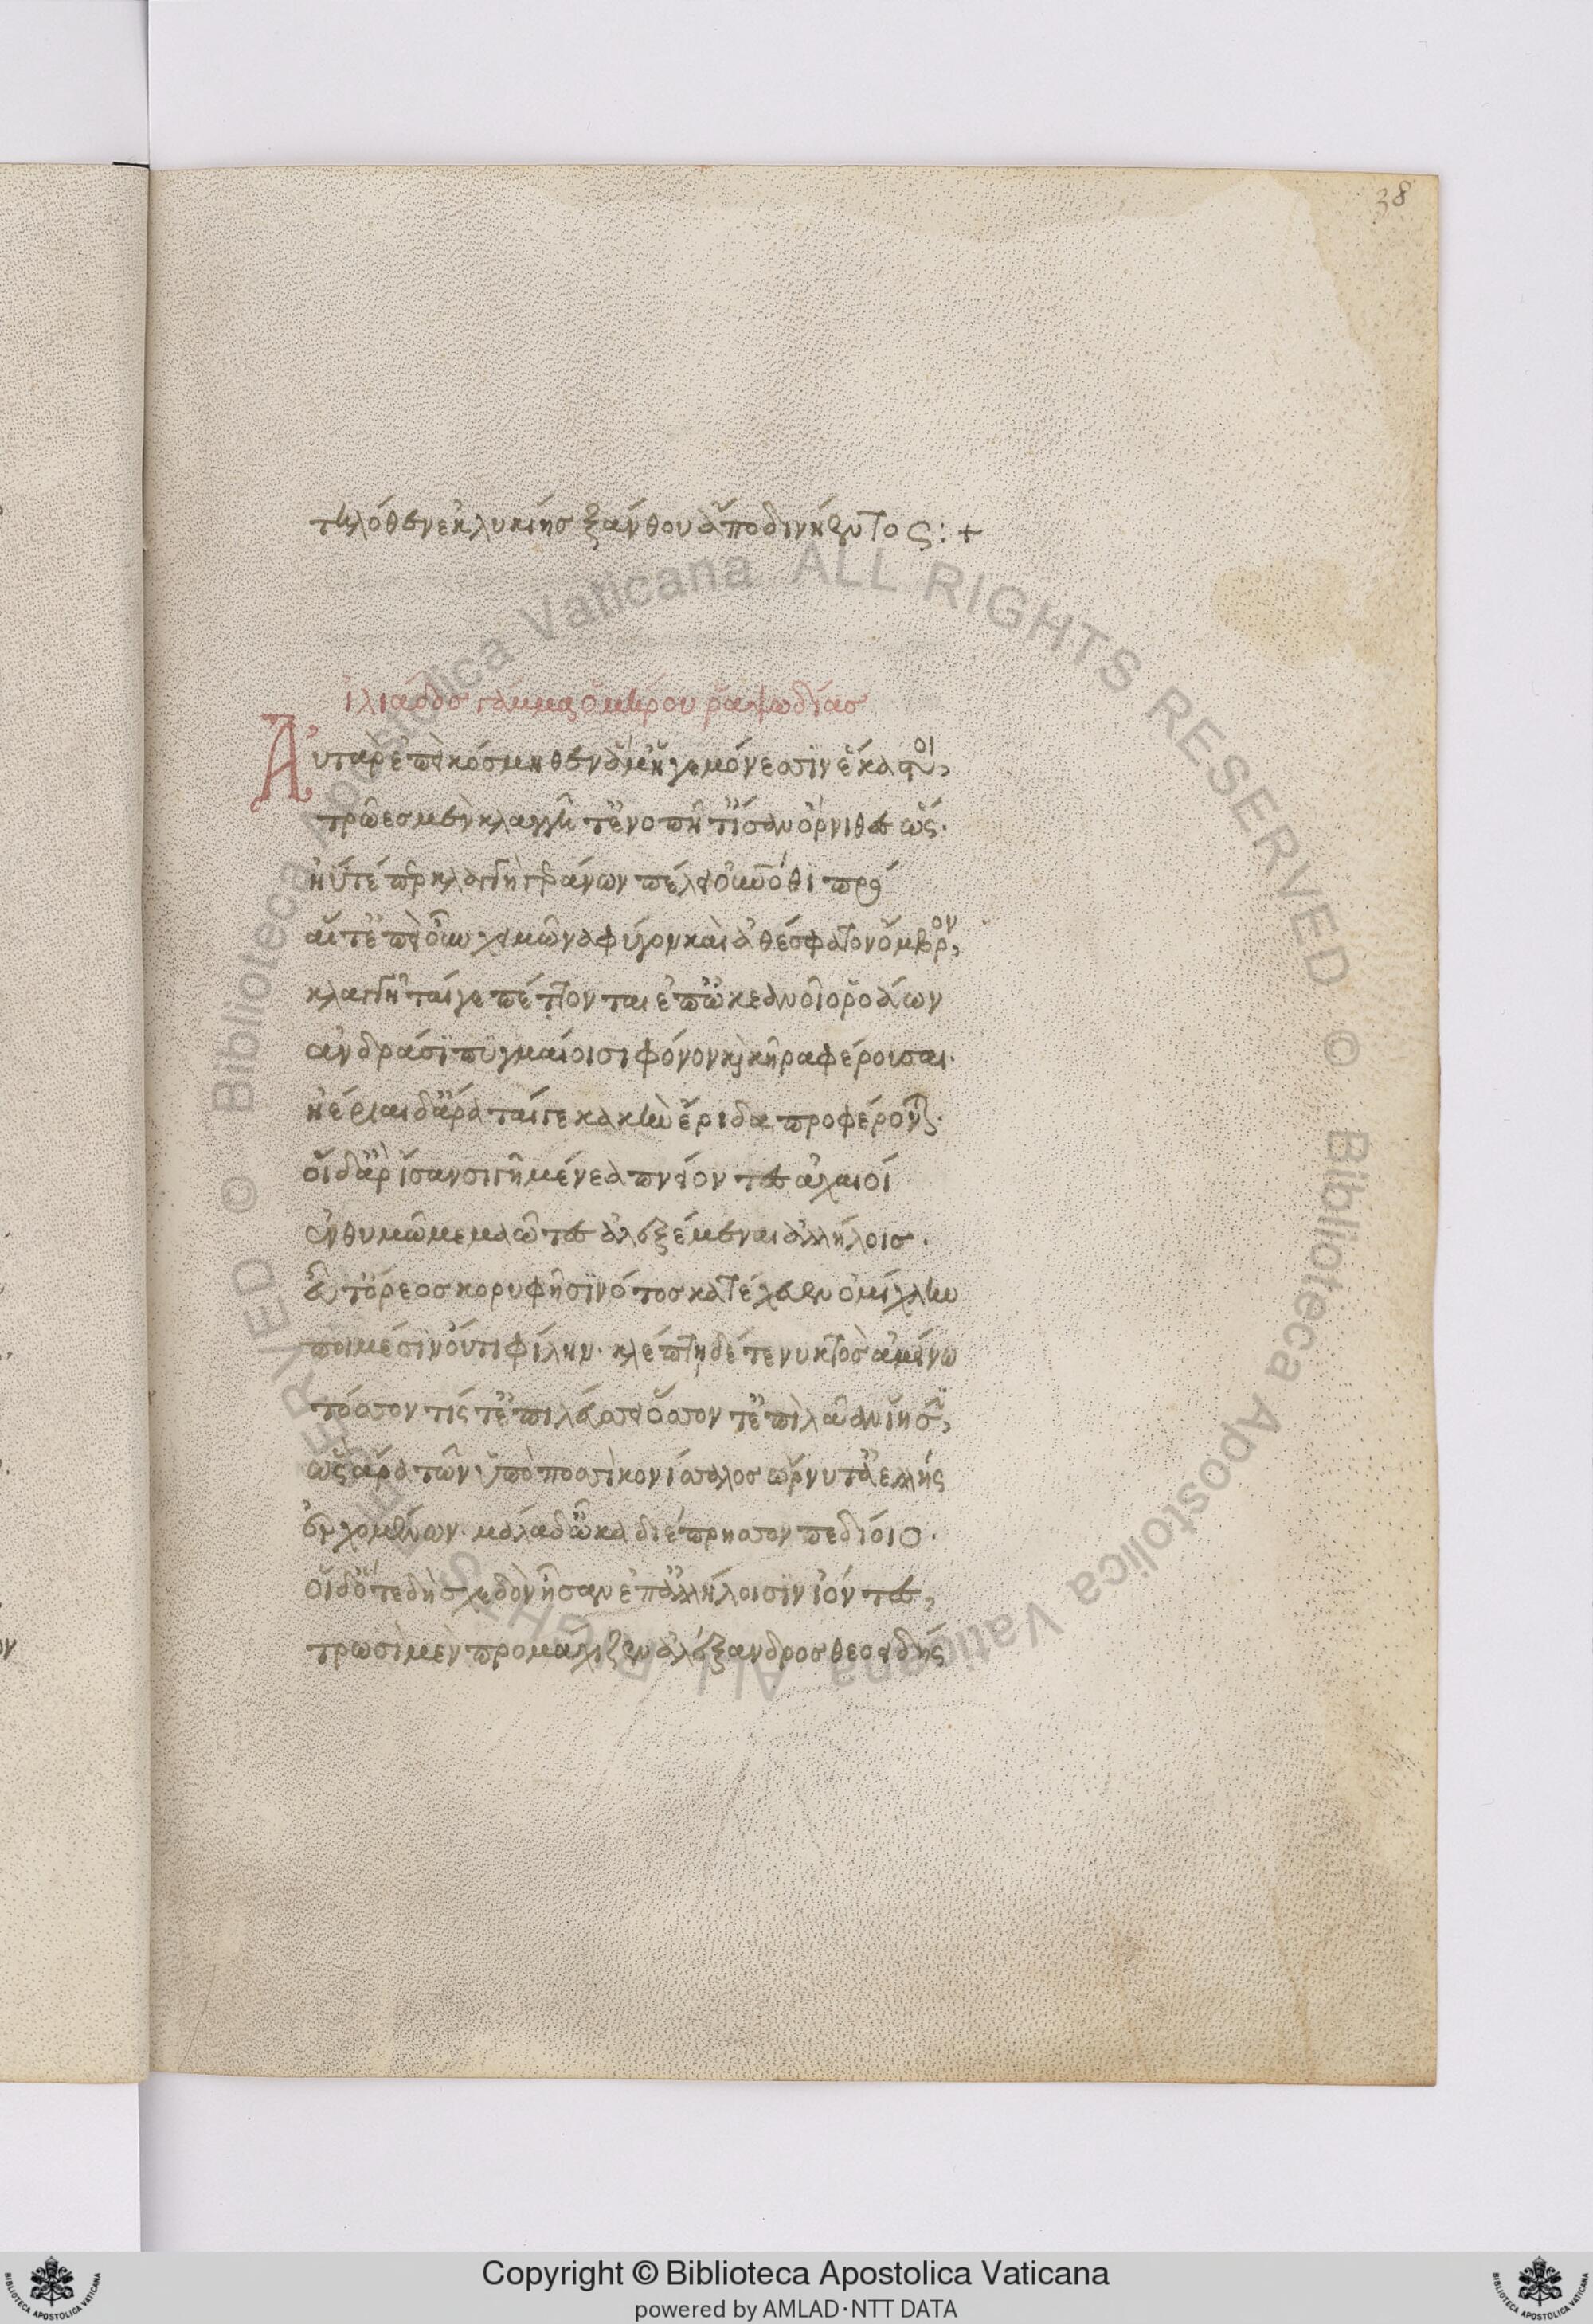 38
τηλόθεν ἐκ λυκίης ξάνθου ἄπο δινήεντος : +
ἰλιάδος γάμμα ὁμήρου ῥαψωδίας
Αὐτὰρ ἐπεὶ κόσμηθεν ἅμ' ἡγεμόνεσσιν ἕκαστοι,
τρῶες μὲν κλαγγῇ τ' ἐνοπῇ τ' ἴσαν ὄρνιθες ὥς·
ἠΰτέ περ κλαγγὴ γεράνων πέλει οὐρανόθι πρό
αἵ τ' ἐπεὶ οὖν χειμῶνα φύγον καὶ ἀθέσφατον ὄμβρον,
κλαγγῇ ταί γε πέτονται ἐπ' ὠκεανοῖο ῥοάων
ἀνδράσι πυγμαίοισι φόνον καὶ κῆρα φέρουσαι·
ἠέριαι δ' ἄρα ταί γε κακὴν ἔριδα προφέρονται·
οἳ δ' ἄρ' ἴσαν σιγῇ μένεα πνείοντες ἀχαιοί
ἐν θυμῷ μεμαῶτες ἀλεξέμεναι ἀλλήλοισ·
εὖτ' ὄρεος κορυφῇσι νότος κατέχευεν ὀμίχλην
ποιμέσιν οὔτι φίλην· κλέπτῃ δέ τε νυκτὸς ἀμείνω
τόσσον τίς τ' ἐπιλεύσσει ὅσον τ' ἐπὶ λᾶαν ἵησιν,
ὣς ἄρα τῶν ὑπὸ ποσσὶ κονίσαλος ὤρνυτ' ἀελλής
ἐρχομένων· μάλα δ' ὦκα διέπρησσον πεδίοιο·
οἳ δ' ὅτε δὴ σχεδὸν ἦσαν ἐπ' ἀλλήλοισιν ἰόντες,
τρωσὶ μὲν προμάχιζεν ἀλέξανδρος θεοειδής
Copyright © Biblioteca Apostolica Vaticana
powered by AMLAD·NTT DATA